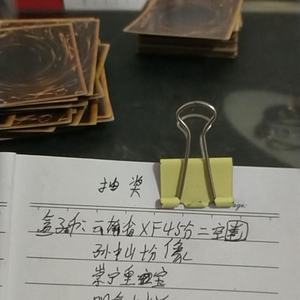 抽奖
盒子币：云南省XF455二字圆
孙中山坊像
崇宁重宝